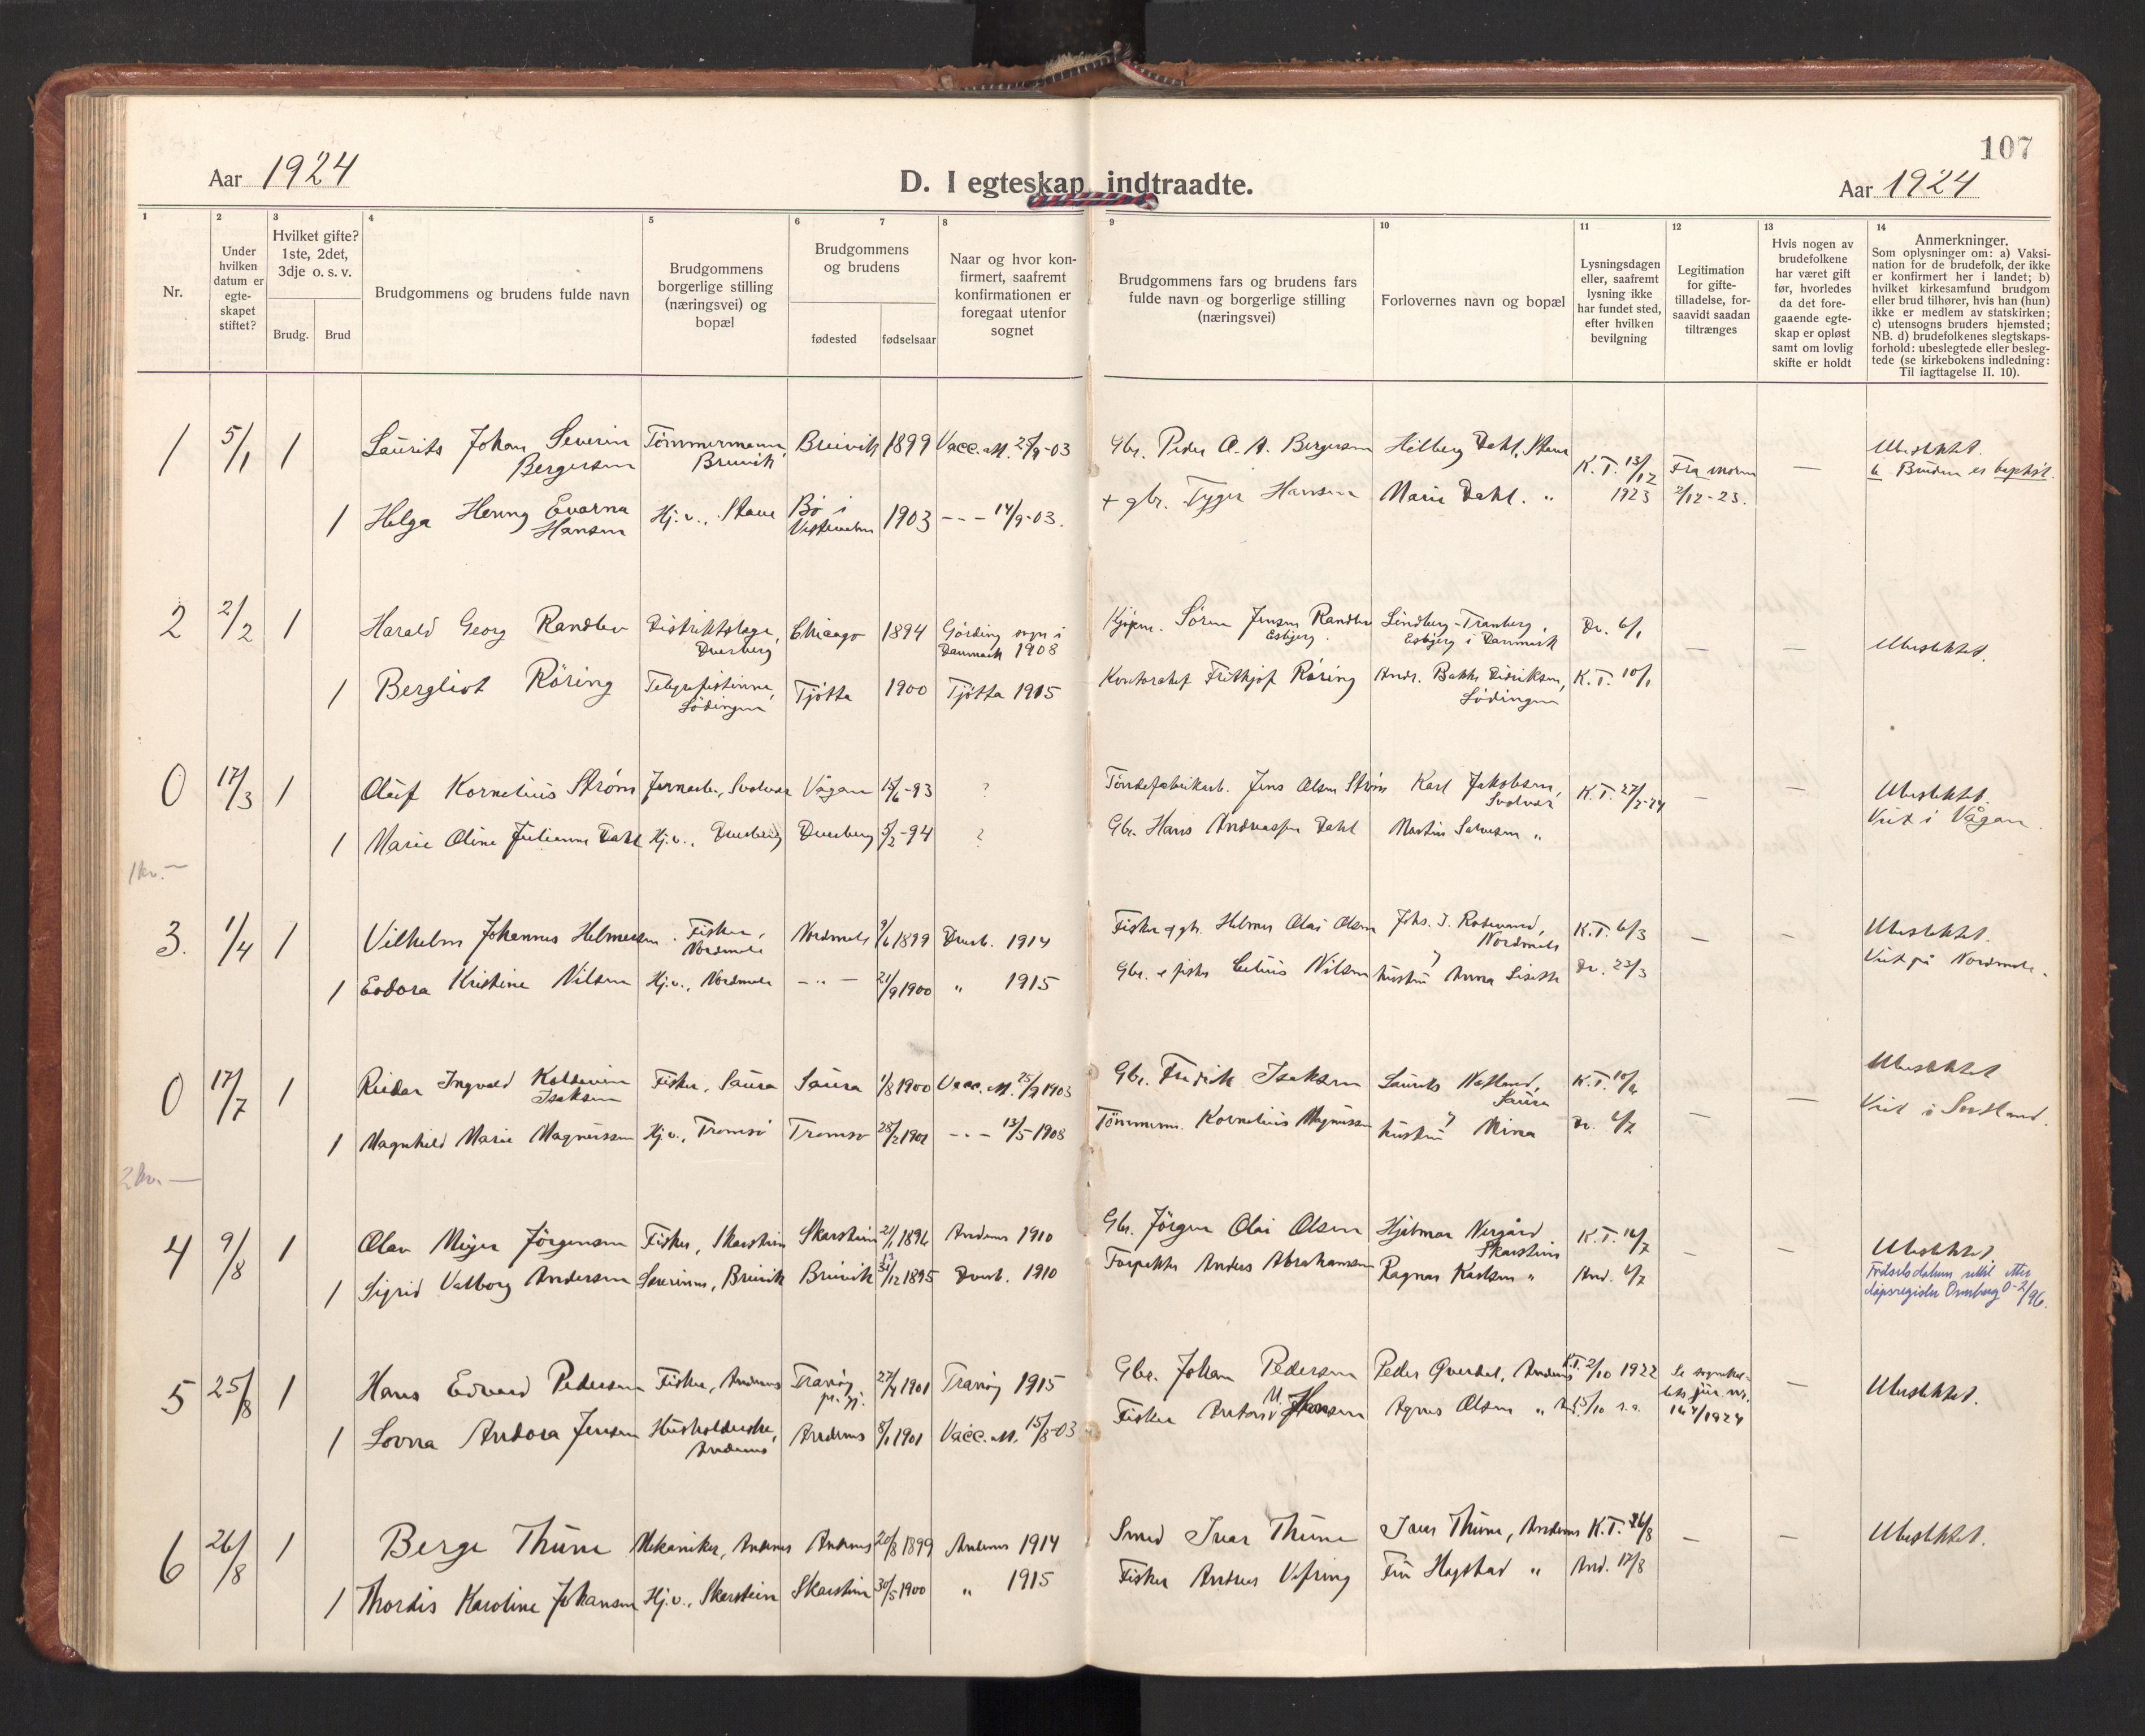 107
Aar 1924
D. I egteskap indtraadte.
Aar 1924
1
Nr.
2
Under
hvilken
datum er
egte-
skapet
stiftet?
3
Hvilket gifte?
1ste, 2det,
3dje o. s. v.
Brudg.
Brud
4
Brudgommens og brudens fulde navn
5
Brudgommens
borgerlige stilling
(næringsvei) og
bopæl
6
7
Brudgommens
og brudens
fødested
fødselsaar
8
Naar og hvor kon-
firmert, saafremt
konfirmationen er
foregaat utenfor
sognet
9
Brudgommens fars og brudens fars
fulde navn og borgerlige stilling
(næringsvei)
10
Forlovernes navn og bopæl
11
Lysningsdagen
eller, saafremt
lysning ikke
har fundet sted,
efter hvilken
bevilgning
12
Legitimation
for gifte-
tilladelse, for-
saavidt saadan
tiltrænges
13
Hvis nogen av
brudefolkene
har været gift
før, hvorledes
da det fore-
gaaende egte-
skap er opløst
samt om lovlig
skifte er holdt
14
Anmerkninger.
Som oplysninger om: a) Vaksi-
nation for de brudefolk, der ikke
er konfirmert her i landet; b)
hvilket kirkesamfund brudgom
eller brud tilhører, hvis han (hun)
ikke er medlem av statskirken;
c) utensogns bruders hjemsted;
NB. d) brudefolkenes slegtskaps-
forhold: ubeslegtede eller besleg-
tede (se kirkebokens indledning:
Til iagttagelse II. 10).
1 5/1 1 Laurits Johan Severin Tømmermann, Breivik 1899 Vacc. att. 25/9-03 Gbr. Peder A. A. Bergersen Hilberg Dahl, Stave K. T. 13/12 Fra moren — Ubeslektet.
Bergersen Breivik 1923 2/12-23. b Bruden er baptist.
1 Helga Henny Evarna Hj.v., Stave Bø i 1903 - - - 14/9-03. + gbr. Tyger Hansen Marie Dahl. "
Hansen Vesteraalen
2 2/2 1 Harald Georg Randlev Distriktslæge, Chicago 1894 Gørding sogn i Kjøpm. Søren Jensen Randlev Lindberg-Tranberg, Dv. 6/1 — — Ubeslektet.
Dverberg Danmark 1908 Esbjerg. Esbjerg i Danmark
1 Bergliot Røring Telegrafistinne, Tjøtta 1900 Tjøtta 1915 Kontorchef Fridtjof Røring Andr. Bakke Didriksen, K. T. 10/1
Lødingen Lødingen
0 17/3 1 Olaf Kornelius Strøm Jernarb., Svolvær Vågan 15/6-93 ? Tøndefabrikarb. Jens Olsen Strøm Karl Jakobsen, K. T. 27/2-24 — — Ubeslektet.
Svolvær Viet i Vågan.
1 Marie Oline Julianne Dahl Hj.v., Dverberg Dverberg 5/2-94 ? Gbr. Hans Andreassen Dahl Martin Salvesen "
1 kr. —
3. 1/4 1 Vilhelm Johannes Helmersen Fisker, Nordmela 9/6 1899 Dverb. 1914 Fisker & gbr. Helmer Olai Olsen Johs. J. Rosenvard, K. T. 6/3 — — Ubeslektet.
Nordmela Nordmela Viet på Nordmela.
1 Eodora Kristine Nilsen Hj.v., Nordmela - " - 21/9 1900 " 1915 Gbr. & fisker Edvin Nilsen hustru Anna Lisette Dv. 23/3
0 17/7 1 Reidar Ingvald Koldevin Fisker, Saura Saura 1/8 1900 Vacc. att. 25/9 1903 Gbr. Fredrik Isaksen Laurits Nestland, K. T. 10/4 — — Ubeslektet
Isaksen Saura Viet i Sortland.
1 Magnhild Marie Magnussen Hj.v., Tromsø Tromsø 28/2 1901 - " - 13/5 1908 Tømmerm. Kornelius Magnussen hustru Mina Dv. 6/7
2 kr. —
4 9/8 1 Olav Meyer Jørgensen Fisker, Skarstein Skarstein 21/1 1896 Andenes 1910 Gbr. Jørgen Olai Olsen Hjalmar Nergård K. T. 14/7 — — Ubeslektet.
Skarstein Fødselsdatum rettet etter
1 Sigrid Valborg Andersen Lærerinne, Breivik Breivik 31/12 1895 Dverb. 1910 Forpakter Anders Abrahamsen Ragnar Karlsen " And. 6/7 dåpsregister Dverberg 0-2/96.
5 25/8 1 Hans Edvard Pedersen Fisker, Andenes Tranøy 27/4 1901 Tranøy 1915 Gbr. Johan Pedersen Peder Qverdal, Andenes K.T. 2/10 1922 Se — Ubeslektet.
pr. gj. jur. nr.
1 Lovna Andora Jensen Husholderske, Andenes 8/1 1901 Vacc. att. 15/8-03 Fisker Anton Hansen Agnes Olsen " 15/10 s.a. 164/1924
Andenes
6 26/8 1 Berge Thune Mekaniker, Andenes Andenes 20/8 1899 Andenes 1914 Smed Ivar Thune Ivar Thune, Andenes K. T. 16/8 — — Ubeslektet.
1 Thordis Karoline Johansen Hj.v., Skarstein Skarstein 30/5 1900 " 1915 Fisker Andreas Vefring Finn Hagstad " And. 17/8